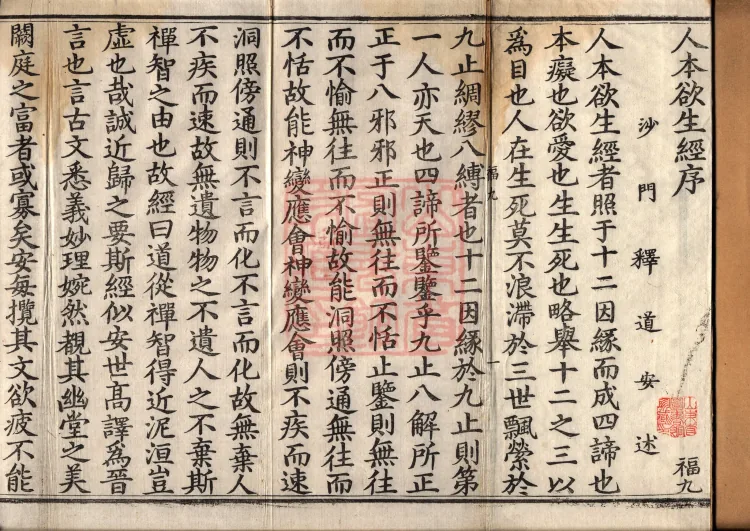 人本欲生經序
沙門釋道安述
福九
人本欲生經者照于十二因緣而成四諦也
本癡也欲愛也生生死也略舉十二之三以
爲目也人在生死莫不浪滯於三世飄縈於
福九
一
九止綢繆八縛者也十二因緣於九止則第
一人亦天也四諦所鑒鑒乎九止八解所正
正于八邪邪正則無往而不恬止鑒則無往
而不愉無往而不愉故能洞照傍通無往而
不恬故能神變應會神變應會則不疾而速
洞照傍通則不言而化不言而化故無棄人
不疾而速故無遺物物之不遺人之不棄斯
禪智之由也故經曰道從禪智得近泥洹豈
虛也哉誠近歸之要斯經似安世高譯爲晉
言也言古文悉義妙理婉然覩其幽堂之美
闕庭之富者或寡矣安每攬其文欲疲不能